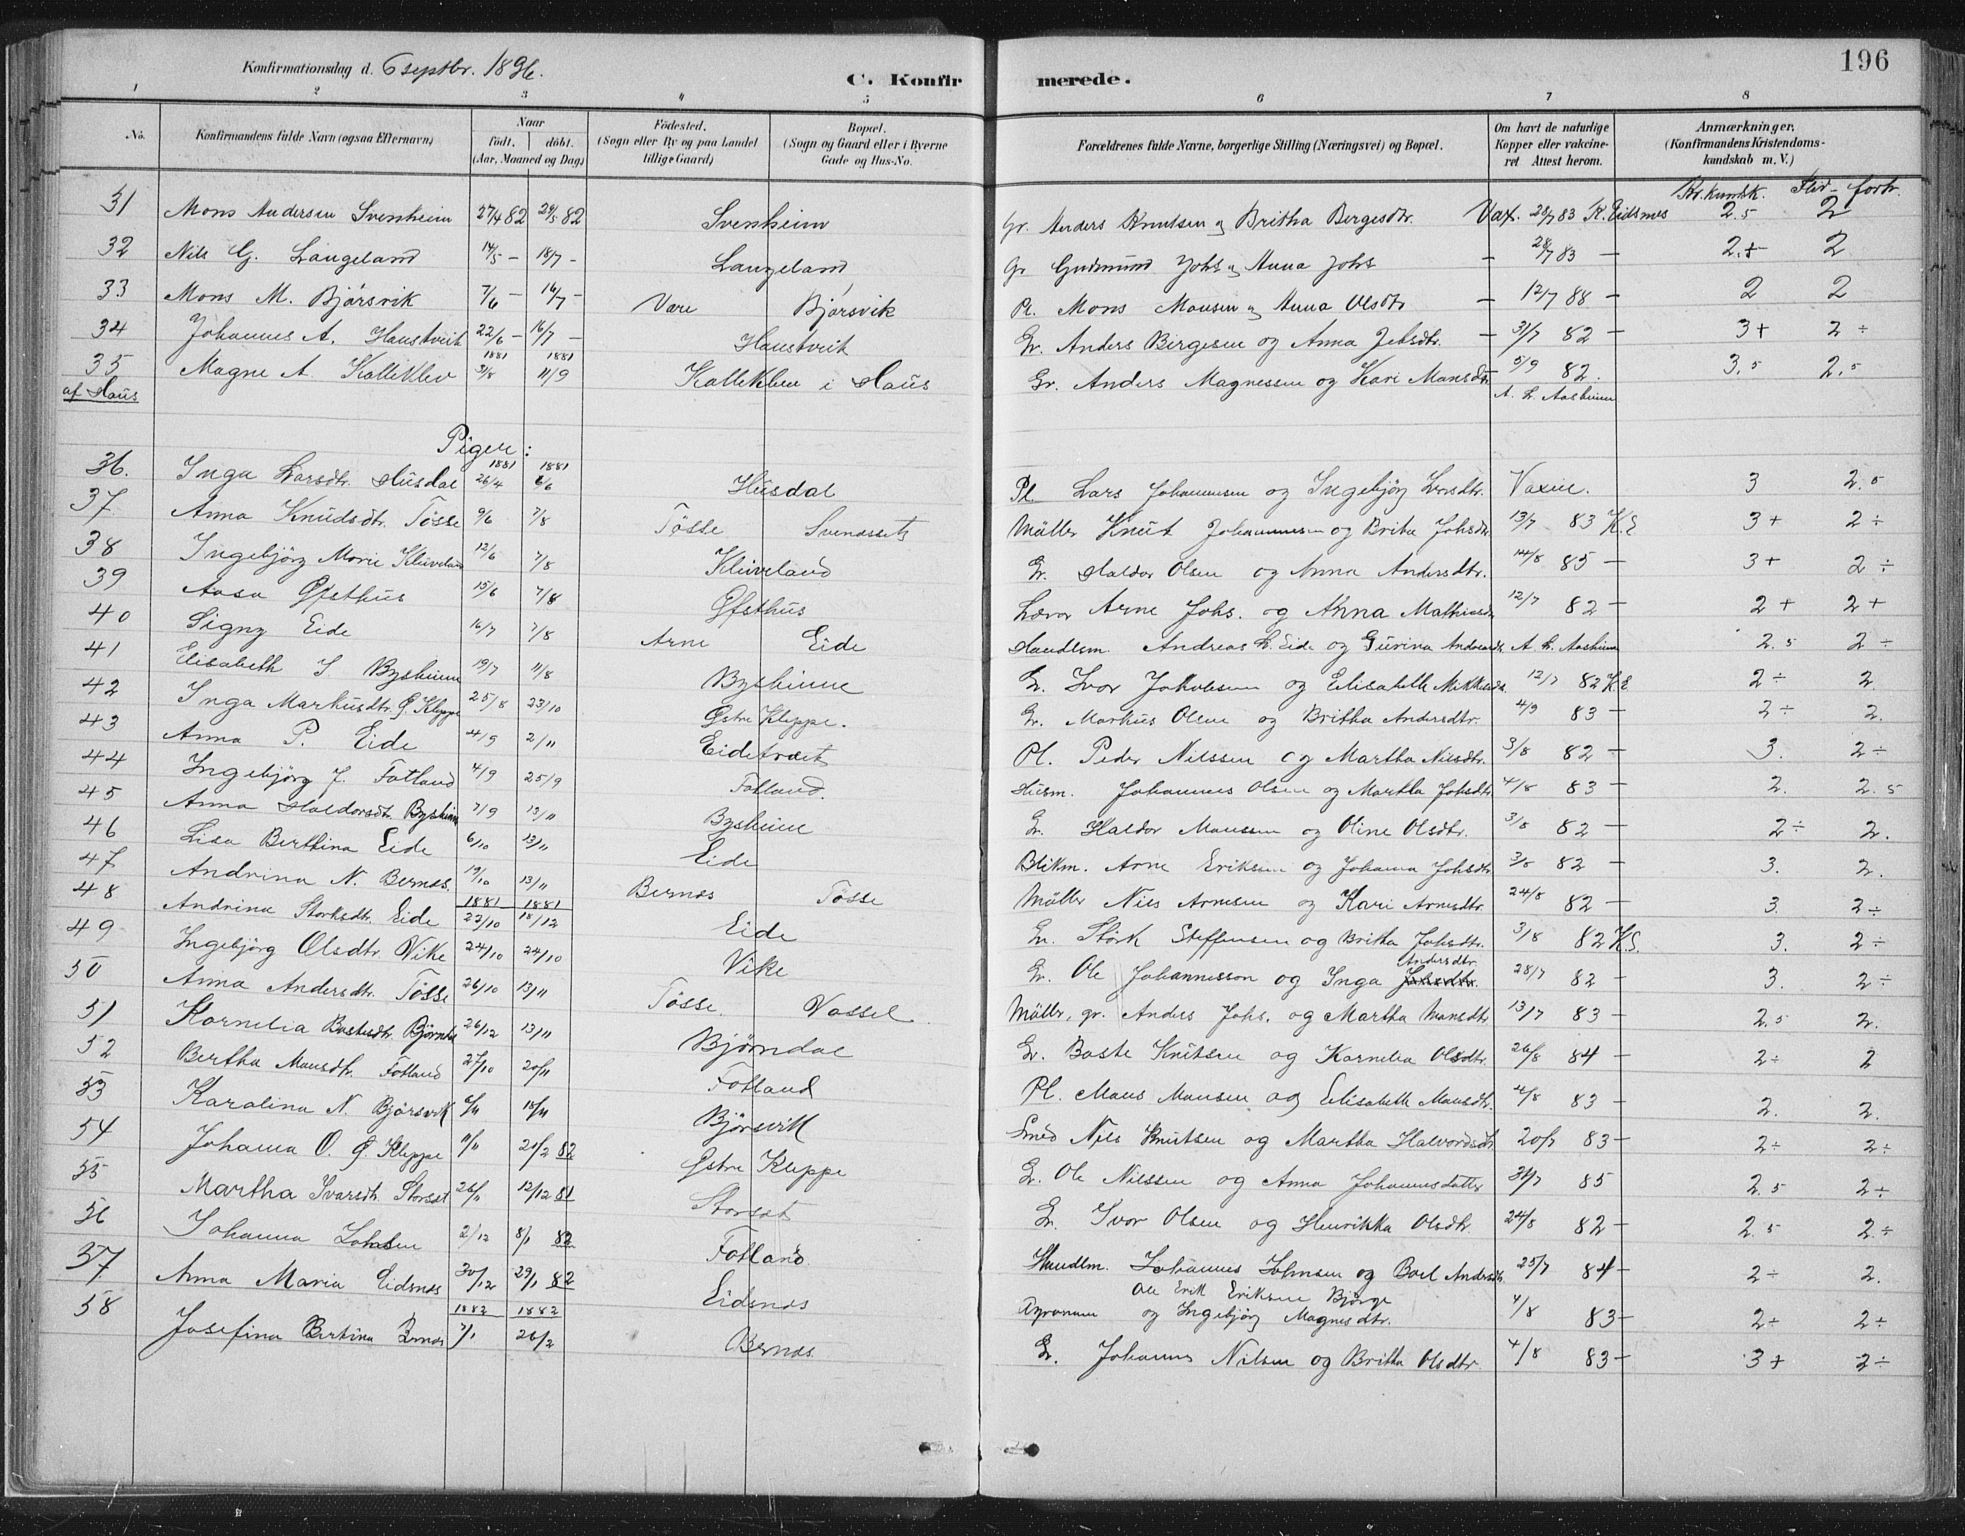 196
Konfirmationsdag d. 6 septbr. 1896.
C. Konfirmerede.
1 2 3 4 5 6 7 8
No. Konfirmandens fulde Navn (ogsaa Efternavn) Naar födt. döbt. (Aar, Maaned og Dag) Födested. (Sogn eller By og paa Landet tillige Gaard) Bopæl. (Sogn og Gaard eller i Byerne Gade og Hus-No. Forældrenes fulde Navne, borgerlige Stilling (Næringsvei) og Bopæl. Om havt de naturlige Kopper eller vakcineret Attest herom. Anmærkninger. (Konfirmandens Kristendomskundskab m. V.)
Kr. kundsk. Flid- forh.
31 Mons Andersen Svenheim 27/4 82 29/5 82 Svenheim Gr. Anders Knutsen og Britha Bergesdtr. Vax. 28/7 83 K. Eidsnes 2.5 2
32 Nils G. Langeland 14/5 – 18/7 – Langeland Gr Gudmund Johs og Anna Johs – 28/7 83 – 2.+ 2
33 Mons M. Bjórsvik 7/6 – 16/7 – Vare Bjórsvik Pl. Mons Monsen og Anna Olsdtr – 12/7 88 – 2 2
34 Johannes A. Haustveit 22/6 – 16/7 – Haustveit Gr. Anders Bergesen og Anna Jebsdtr. – 31/7 82 – 3+ 2÷
35 Magne A. Kalleklev 1881 31/8 1881 11/9 Kalleklev i Haus Gr. Anders Magnessen og Kari Monsdtr 5/9 82. 3.5 2.5
af Haus A. L. Aasheim
Piger:
36. Inga Larsdtr. Husdal 1881 26/4 1881 6/6 Husdal Pl. Lars Johannesen og Ingebjörg Larsdtr. Vaxine. 3 2.5
37 Anna Knudsdtr. Tösse 9/6 7/8 Tösse Svendssæt Möller Knut Johannesen og Brita Johsdtr 13/7 83 K.E 3+ 2÷
38 Ingebjörg Marie Kleiveland 12/6 7/8 Kleiveland Gr. Haldor Olsen og Anna Andersdtr. 14/8 85 – 3+ 2÷
39 Aasa Øfsthus 15/6 7/8 Øfsthus Lærer Arne Johs. og Anna Mathiasdtr 12/7 82 – 2+ 2+
40 Signy Eide 16/7 7/8 Arne Eide Handlsm. Andreas L. Eide og Gurina Andreasdtr. A. L. Aasheim 2.5 2÷
41 Elisabeth I Bysheim 19/7 11/8 Bysheim Gr. Ivar Jakobsen og Elisabeth Mikkelsdtr. 12/7 82 K.E 2÷ 2
42 Inga Markusdtr. Ø. Kleppe 25/8 23/10 Østre Kleppe. Gr. Markus Olsen og Britha Andersdtr. 4/9 83 – 2÷ 2.
43 Anna P. Eide 4/9 2/11 Eidetræet Pl. Peder Nilssen og Martha Nilsdtr. 3/8 82 – 3. 2÷
44 Ingebjörg J. Fotland 4/9 25/9 Fotland. Husm. Johannes Olsen og Martha Johsdtr. 4/8 83 – 2. 2.5
45 Anna Haldorsdtr. Bysheim 7/9 13/11 Bysheim Gr. Haldor Monssen og Oline Olsdtr. 3/8 82 – 2÷ 2.
46 Lisa Berthina Eide 6/10 13/11 Eide Blikm. Arne Eriksen og Johanna Johsdtr 3/8 82 – 3. 2.
47 Andrina N. Bernes. 19/10 13/11 Bernes Tösse Möller Nils Arnesen og Kari Arnesdtr. 24/8 82 – 3. 2÷
48 Andrina Storksdtr. Eide 1881 22/10 1881 18/12 Eide Gr. Störk Steffensen og Britha Johsdtr. 3/8 82 K.E. 3. 2÷
49 Ingebjörg Olsdtr. Vike 24/10 24/10 Vike Gr. Ole Johannesson og Inga Andersdtr. 28/7 82 – 3. 2÷
50 Anna Andersdtr. Tösse 26/10 13/11 Tösse. Vassel Möller, gr. Anders Johs. og Martha Monsdtr 13/7 83 – 2.5 2.
51 Kornelia Bastesdtr. Björndal 26/12 13/11 Björndal Gr. Baste Knutsen og Kornelia Olsdtr. 26/8 84 – 2÷ 2
52 Bertha Monsdtr. Fotland 27/10 20/11 Fotland Pl. Mons Monsen og Elisabeth Monsdtr. 4/8 83 – 2. 2.
53 Karolina N. Bjórsvik 6/11 18/11 Bjórsvik Smed Nils Knutsen og Martha Halvordsdtr 20/7 83 – 2÷ 2÷
54 Johanna O. Ø. Kleppe 11/11 21/2 82 Østre Kleppe Gr. Ole Nilssen og Anna Johannesdatter 31/7 85 2.5 2÷
55 Martha Ivarsdtr. Storset 26/11 12/12 81 Storset Gr. Ivar Olsen og Henrikka Olsdtr. 24/8 82 – 2.5 2÷
56 Johanna Johnsen 2/12 8/1 82 Fotland Handlm. Johannes Johnsen og Boel Andersdtr. 25/7 84 – 2÷ 2.
57 Anna Maria Eidsnes 30/12 29/1 82 Eidsnes Agronom Ole Erik Eriksen Bjørge og Ingebjörg Magnesdtr. 4/8 83 – 2÷ 2÷
58 Josefina Bertina Bernes 1882 7/1 1882 26/2 Bernes. Gr. Johannes Nilsen og Britha Olsdtr. 4/8 83 – 3+ 2÷